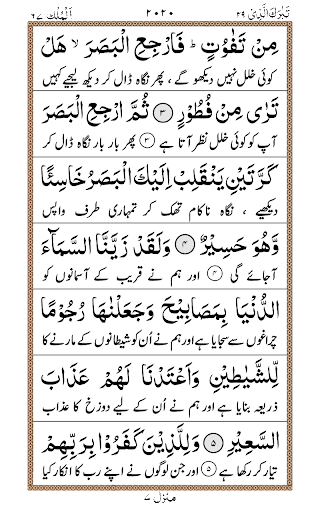 تَبٰرَكَ الَّذِیْ ۲۹ ۲۰۲۰ اَلْمُلْك ۶۷
مِنْ تَفٰوُتٍ ؕ فَارْجِعِ الْبَصَرَ ۙ هَلْ
کوئی خلل نہیں دیکھو گے ، پھر نگاہ ڈال کر دیکھ لیجیے کہیں
تَرٰی مِنْ فُطُوْرٍ ﴿۳﴾ ثُمَّ ارْجِعِ الْبَصَرَ
آپ کو کوئی خلل نظر آتا ہے ﴿۳﴾ پھر بار بار نگاہ ڈال کر
كَرَّتَیْنِ یَنْقَلِبْ اِلَیْكَ الْبَصَرُ خَاسِئًا
دیکھیے ، نگاہ ناکام تھک کر تمہاری طرف واپس
وَّهُوَ حَسِیْرٌ ﴿۴﴾ وَلَقَدْ زَیَّنَّا السَّمَآءَ
آجائے گی ﴿۴﴾ اور ہم نے قریب کے آسمانوں کو
الدُّنْیَا بِمَصَابِیْحَ وَجَعَلْنٰهَا رُجُوْمًا
چراغوں سے سجایا ہے اور ہم نے اُن کو شیطانوں کے مارنے کا
لِّلشَّیٰطِیْنِ وَاَعْتَدْنَا لَهُمْ عَذَابَ
ذریعہ بنایا ہے اور ہم نے اُن کے لیے دوزخ کا عذاب
السَّعِیْرِ ﴿۵﴾ وَلِلَّذِیْنَ كَفَرُوْا بِرَبِّهِمْ
تیار کر رکھا ہے ﴿۵﴾ اور جن لوگوں نے اپنے رب کا انکار کیا
منزل ۷